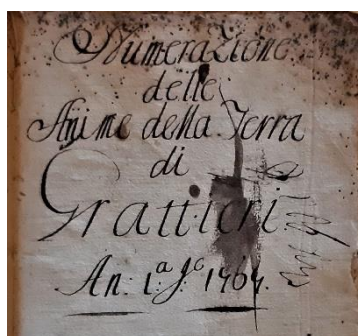 Numerazione
delle
Anime della Terra
di
Grattieri
An: 1.ª